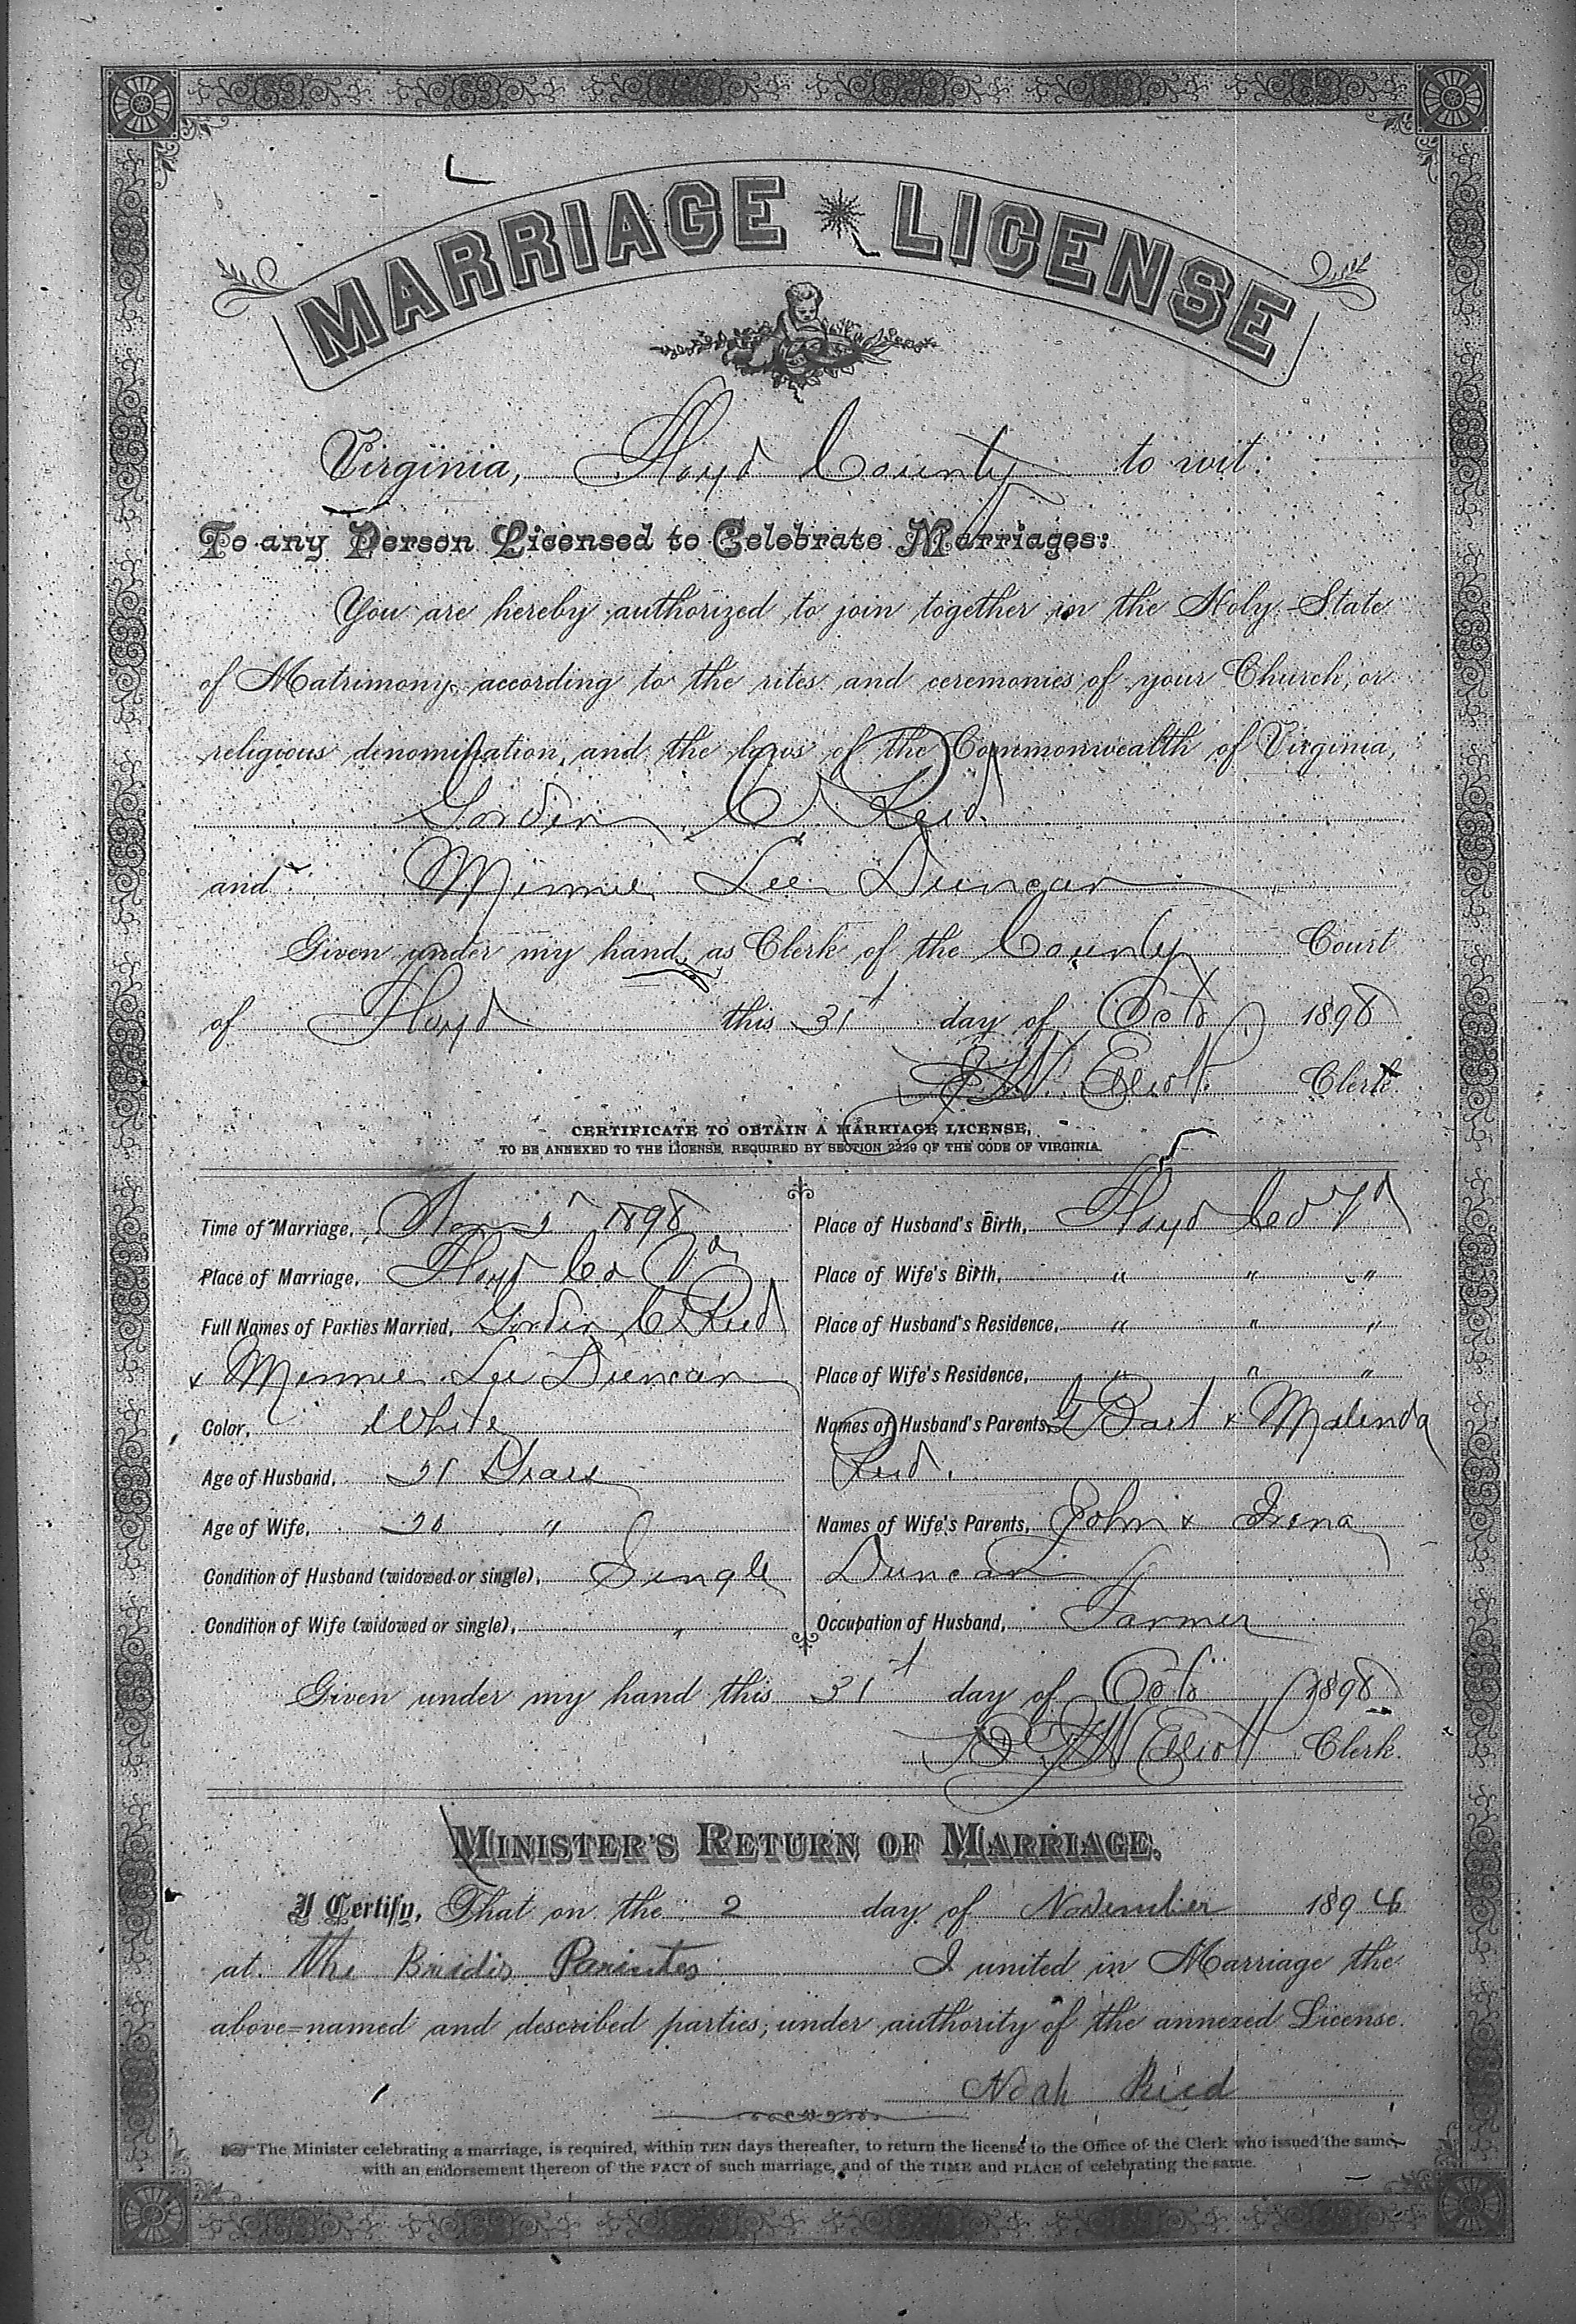 MARRIAGE LICENSE
Virginia, Floyd County to wit:
To any Person Licensed to Celebrate Marriages:
You are hereby authorized to join together in the Holy State
of Matrimony, according to the rites and ceremonies of your Church, or
religious denomination, and the laws of the Commonwealth of Virginia,
Gordin C Reid
and Minnie Lee Duncan
Given under my hand, as Clerk of the County Court
of Floyd this 31st day of Octo 1898
Clerk.
CERTIFICATE TO OBTAIN A MARRIAGE LICENSE,
TO BE ANNEXED TO THE LICENSE, REQUIRED BY SECTION 2229 OF THE CODE OF VIRGINIA.
Time of Marriage, Nov 2d 1898
Place of Marriage, Floyd Co Va
Full Names of Parties Married, Gordin C Reid
& Minnie Lee Duncan
Color, White
Age of Husband, 21 Years
Age of Wife, 20 "
Condition of Husband (widowed or single), Single
Condition of Wife (widowed or single), "
Place of Husband's Birth, Floyd Co Va
Place of Wife's Birth, " " "
Place of Husband's Residence, " " "
Place of Wife's Residence, " " "
Names of Husband's Parents, Bart & Malinda
Reid.
Names of Wife's Parents, John & Irena
Duncan
Occupation of Husband, Farmer
Given under my hand this 31st day of Octo 1898
Elliott Clerk.
MINISTER'S RETURN OF MARRIAGE.
I Certify, That on the 2 day of November 189
at the Bridis Parintes I united in Marriage the
above-named and described parties, under authority of the annexed License.
Noah Ried
The Minister celebrating a marriage, is required, within TEN days thereafter, to return the license to the Office of the Clerk who issued the same,
with an endorsement thereon of the FACT of such marriage, and of the TIME and PLACE of celebrating the same.